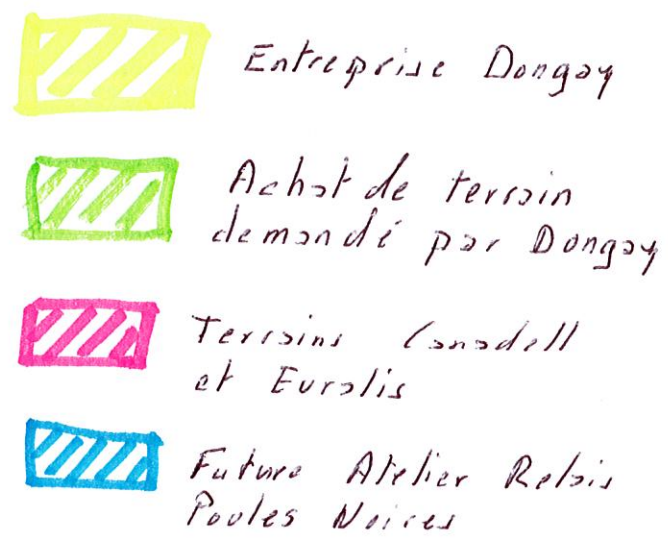 Entreprise Dongay
Achat de terrain
demandé par Dongay
Terrains Canadell
et Euralis
Future Atelier Relais
Poules Noires